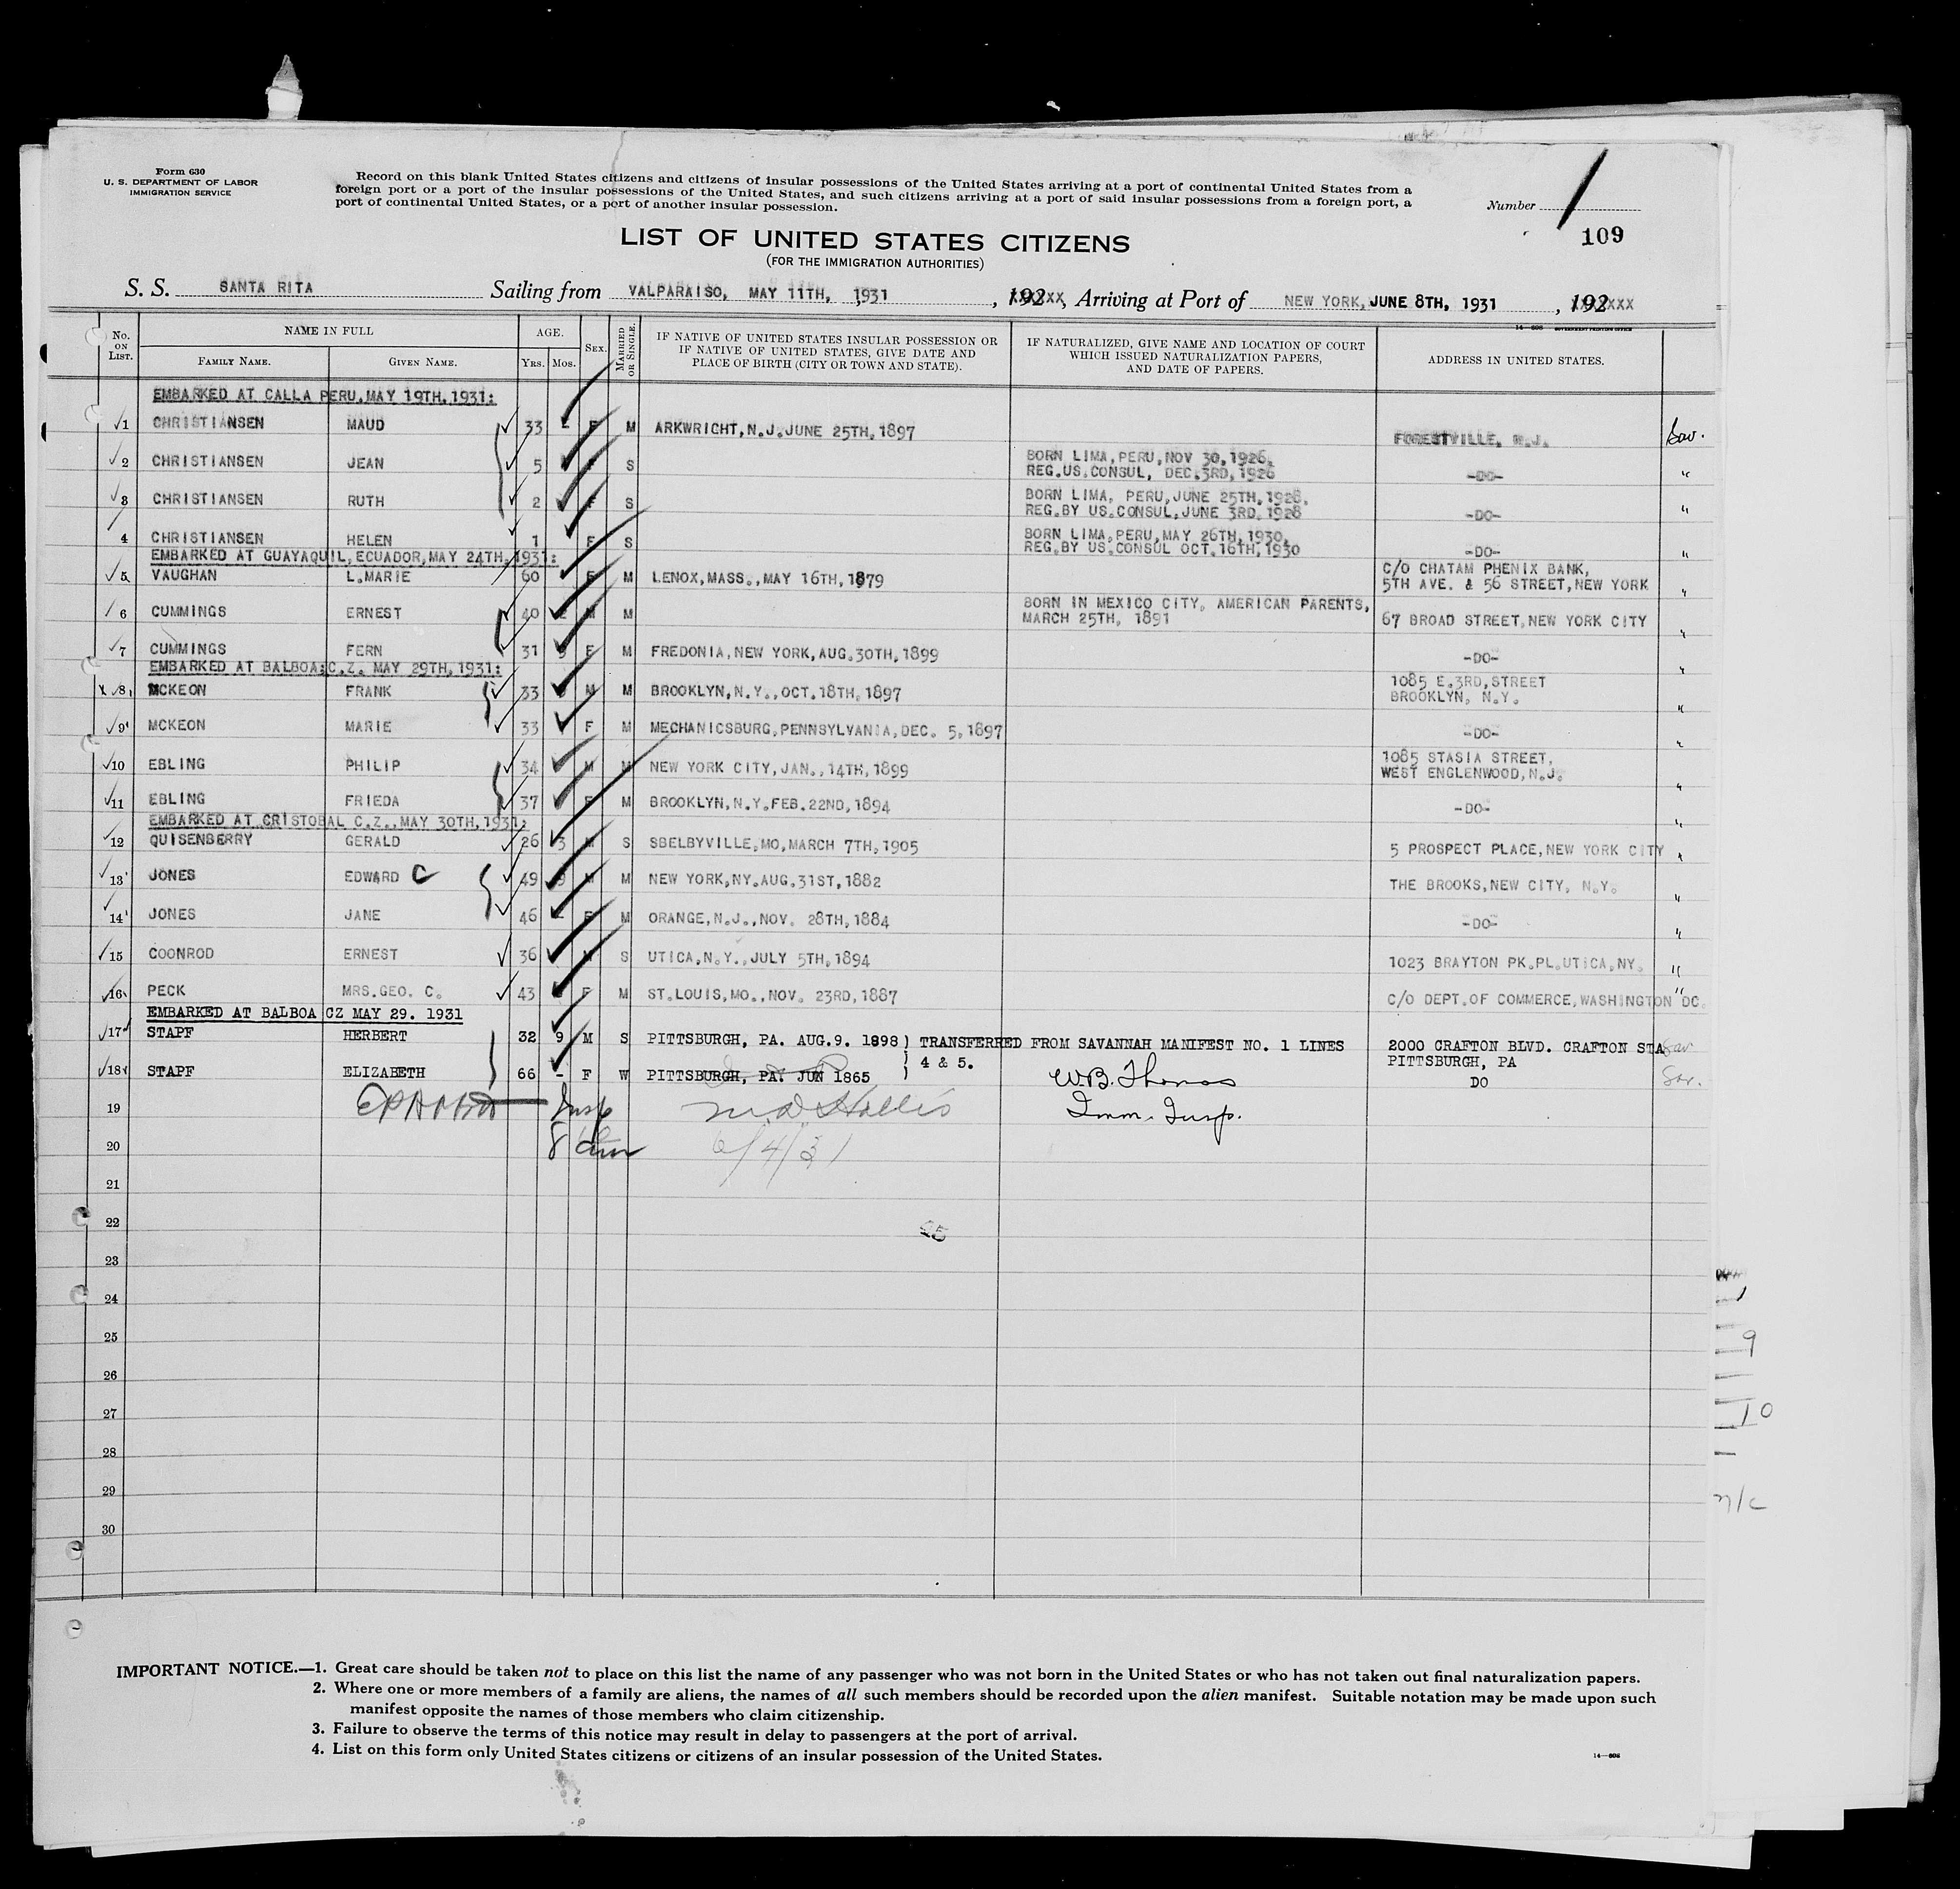 Form 630
U. S. DEPARTMENT OF LABOR
IMMIGRATION SERVICE
Record on this blank United States citizens and citizens of insular possessions of the United States arriving at a port of continental United States from a
foreign port or a port of the insular possessions of the United States, and such citizens arriving at a port of said insular possessions from a foreign port, a
port of continental United States, or a port of another insular possession.
Number 1
109
LIST OF UNITED STATES CITIZENS
(FOR THE IMMIGRATION AUTHORITIES)
S. S. SANTA RITA Sailing from VALPARAISO, MAY 11TH, 1931, 192XXXX, Arriving at Port of NEW YORK, JUNE 8TH, 1931, 192XXXX
No. ON LIST. NAME IN FULL AGE. SEX. MARRIED OR SINGLE. IF NATIVE OF UNITED STATES INSULAR POSSESSION OR IF NATIVE OF UNITED STATES, GIVE DATE AND PLACE OF BIRTH (CITY OR TOWN AND STATE). IF NATURALIZED, GIVE NAME AND LOCATION OF COURT WHICH ISSUED NATURALIZATION PAPERS, AND DATE OF PAPERS. ADDRESS IN UNITED STATES.
FAMILY NAME. GIVEN NAME. Yrs. Mos.
EMBARKED AT CALLA PERU, MAY 19TH, 1931:
1 CHRISTIANSEN MAUD 33 - F M ARKWRICHT, N.J. JUNE 25TH, 1897 FORESTVILLE, N.J. Sav.
2 CHRISTIANSEN JEAN 5 F S BORN LIMA, PERU, NOV 30, 1926, REG. US. CONSUL, DEC. 3RD, 1926 -DO- "
3 CHRISTIANSEN RUTH 2 F S BORN LIMA, PERU, JUNE 25TH, 1928, REG. BY US. CONSUL, JUNE 3RD, 1928 -DO- "
4 CHRISTIANSEN HELEN 1 F S BORN LIMA, PERU, MAY 26TH, 1930, REG. BY US. CONSUL OCT. 16TH, 1930 -DO- "
EMBARKED AT GUAYAQUIL, ECUADOR, MAY 24TH, 1931:
5 VAUGHAN L. MARIE 60 F M LENOX, MASS., MAY 16TH, 1879 C/O CHATAM PHENIX BANK, 5TH AVE. & 56 STREET, NEW YORK "
6 CUMMINGS ERNEST 40 M M BORN IN MEXICO CITY, AMERICAN PARENTS, MARCH 25TH, 1891 67 BROAD STREET, NEW YORK CITY "
7 CUMMINGS FERN 31 9 F M FREDONIA, NEW YORK, AUG. 30TH, 1899 -DO- "
EMBARKED AT BALBOA; C.Z. MAY 29TH, 1931:
8 MCKEON FRANK 33 M M BROOKLYN, N.Y., OCT. 18TH, 1897 1085 E. 3RD, STREET BROOKLYN, N.Y. "
9 MCKEON MARIE 33 F M MECHANICSBURG, PENNSYLVANIA, DEC. 5, 1897 -DO- "
10 EBLING PHILIP 34 M M NEW YORK CITY, JAN., 14TH, 1899 1085 STASIA STREET, WEST ENGLENWOOD, N.J. "
11 EBLING FRIEDA 37 F M BROOKLYN, N.Y. FEB. 22ND, 1894 -DO- "
EMBARKED AT CRISTOBAL C.Z., MAY 30TH, 1931:
12 QUISENBERRY GERALD 26 3 M S SBELBYVILLE, MO, MARCH 7TH, 1905 5 PROSPECT PLACE, NEW YORK CITY "
13 JONES EDWARD C 49 9 M M NEW YORK, NY. AUG. 31ST, 1882 THE BROOKS, NEW CITY, N.Y. "
14 JONES JANE 46 - F M ORANGE, N.J., NOV. 28TH, 1884 -DO- "
15 COONROD ERNEST 36 M S UTICA, N.Y., JULY 5TH, 1894 1023 BRAYTON PK. PL. UTICA, NY. "
16 PECK MRS. GEO. C. 43 F M ST. LOUIS, MO., NOV. 23RD, 1887 C/O DEPT. OF COMMERCE, WASHINGTON DC. "
EMBARKED AT BALBOA CZ MAY 29. 1931
17 STAPF HERBERT 32 9 M S PITTSBURGH, PA. AUG. 9. 1898 ) TRANSFERRED FROM SAVANNAH MANIFEST NO. 1 LINES 4 & 5. 2000 CRAFTON BLVD. CRAFTON STA PITTSBURGH, PA Sav
18 STAPF ELIZABETH 66 - F W PITTSBURGH, PA. JUN 1865 DO Sav.
W.B. Thomas
19 Insp M D Hollis Imm. Insp.
20 6/4/31
21
22
23
24
25
26
27
28
29
30
9
10
n/c
IMPORTANT NOTICE.—1. Great care should be taken not to place on this list the name of any passenger who was not born in the United States or who has not taken out final naturalization papers.
2. Where one or more members of a family are aliens, the names of all such members should be recorded upon the alien manifest. Suitable notation may be made upon such
manifest opposite the names of those members who claim citizenship.
3. Failure to observe the terms of this notice may result in delay to passengers at the port of arrival.
4. List on this form only United States citizens or citizens of an insular possession of the United States.